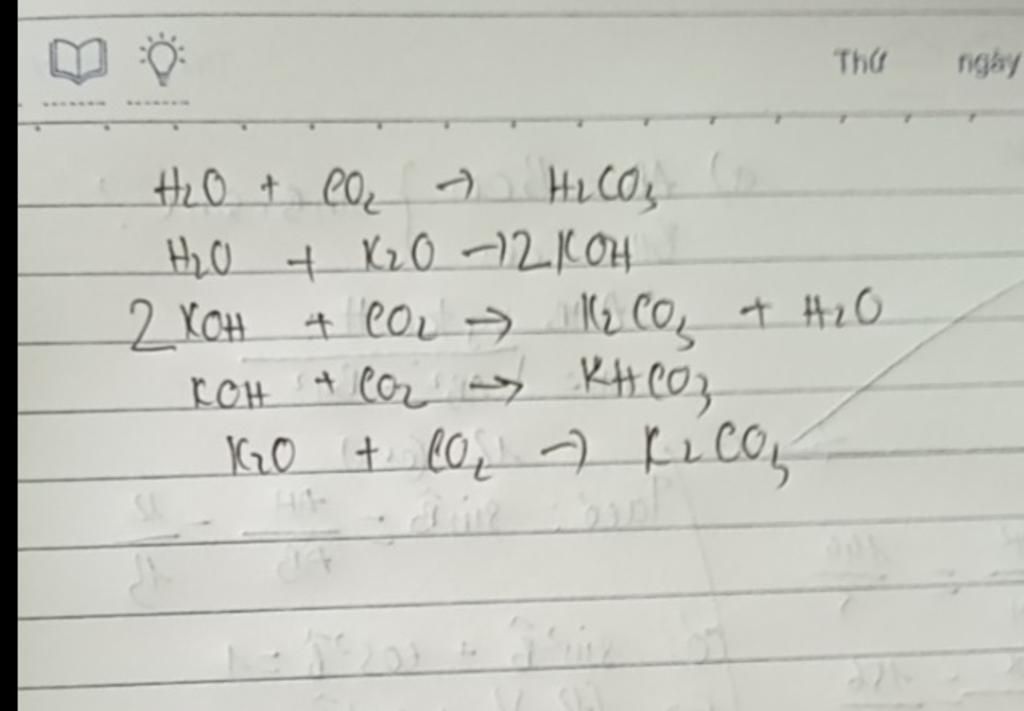 Thứ ngày
H₂O + CO₂ → H₂CO₃
H₂O + K₂O → 2KOH
2KOH + CO₂ → K₂CO₃ + H₂O
KOH + CO₂ → KHCO₃
K₂O + CO₂ → K₂CO₃